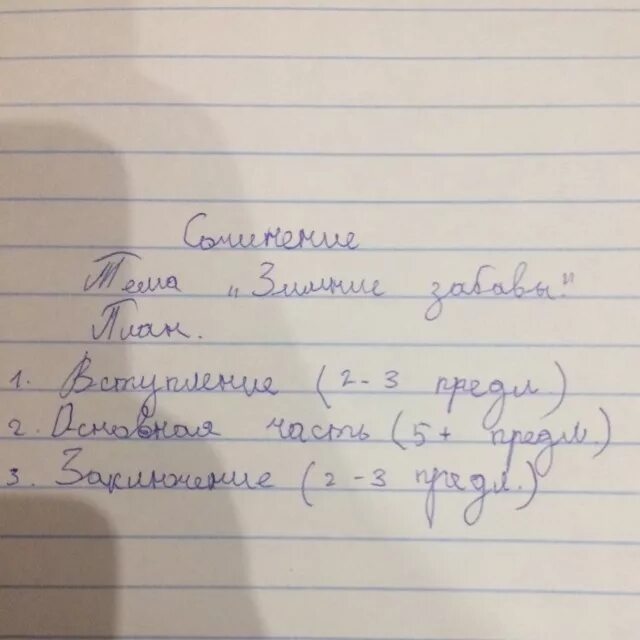 Сочинение
Тема „Зимние забавы."
План.
1. Вступление (2-3 предл.)
2. Основная часть (5+ предл.)
3. Заключение (2-3 предл.)